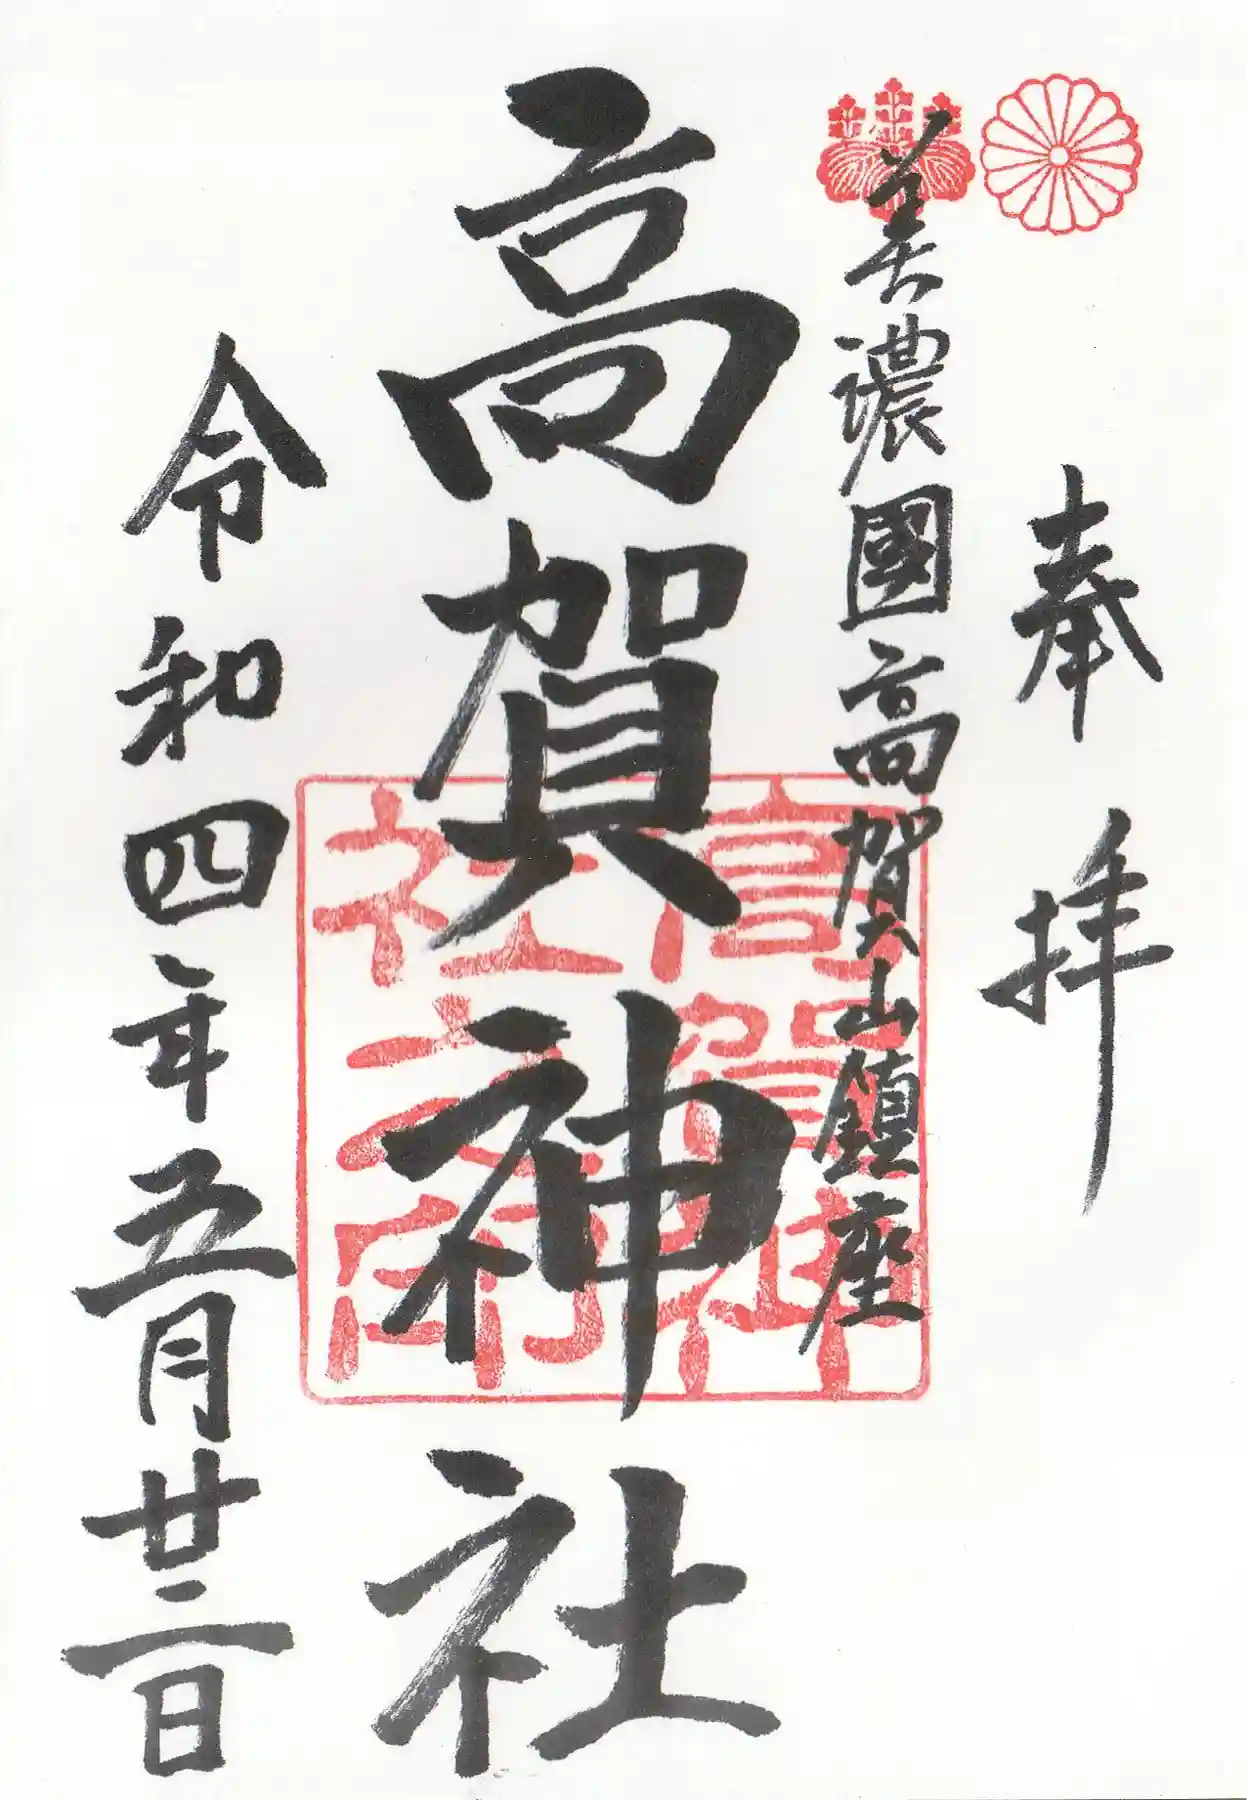 奉拝
美濃國高賀山鎮座
高賀神社
令和四年五月廿二日
高賀神
社之印